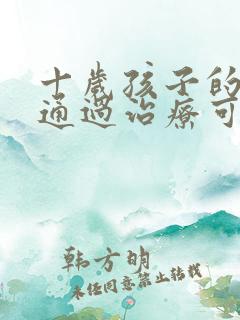 十歲孩子的
通過治療可
韩方明
未经同意禁止转载